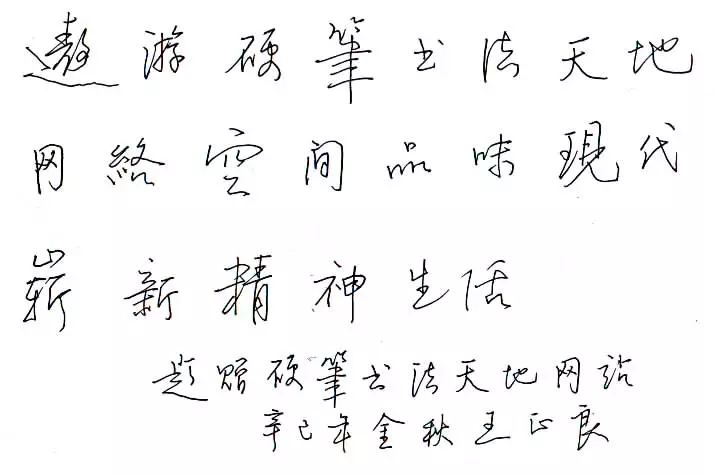 遨游硬筆书法天地
网絡空间品味現代
崭新精神生活
题赠硬筆书法天地网站
辛巳年金秋王正良